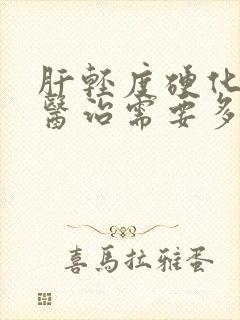 肝輕度硬化
醫治需要多
喜馬拉雅蛋